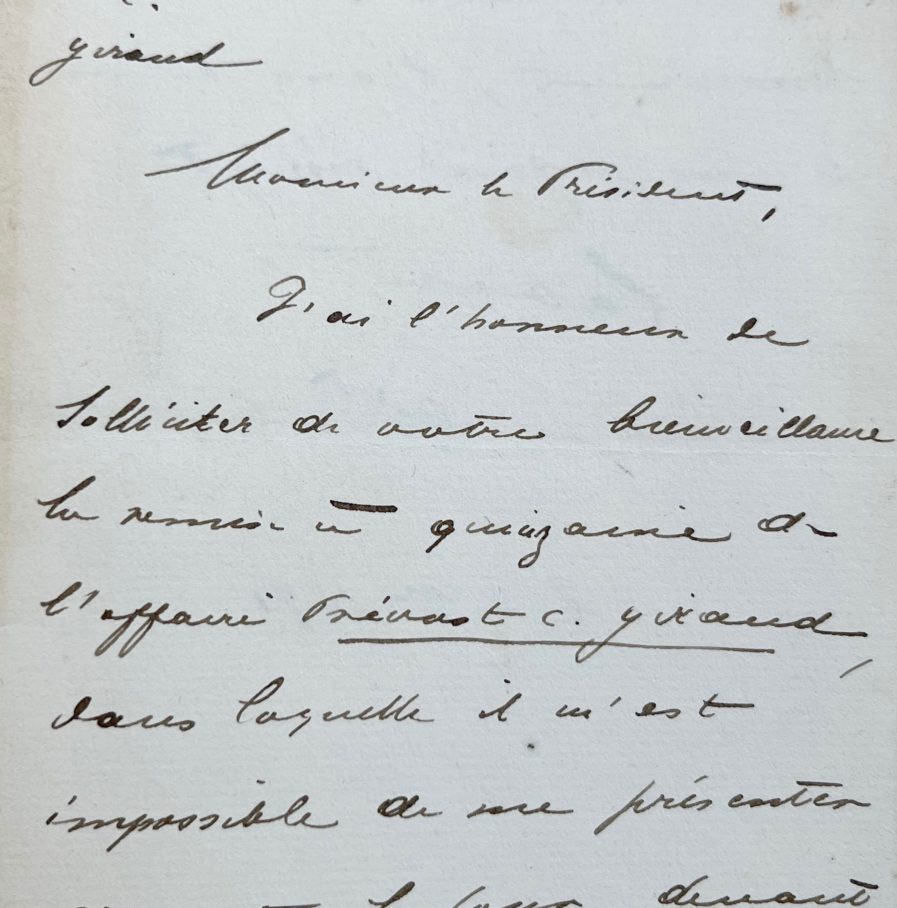 Giraud
Monsieur le Président,
J'ai l'honneur de
solliciter de votre bienveillance
la remise à quinzaine de
l'affaire Prévost c. Giraud,
dans laquelle il m'est
impossible de me présenter
devant